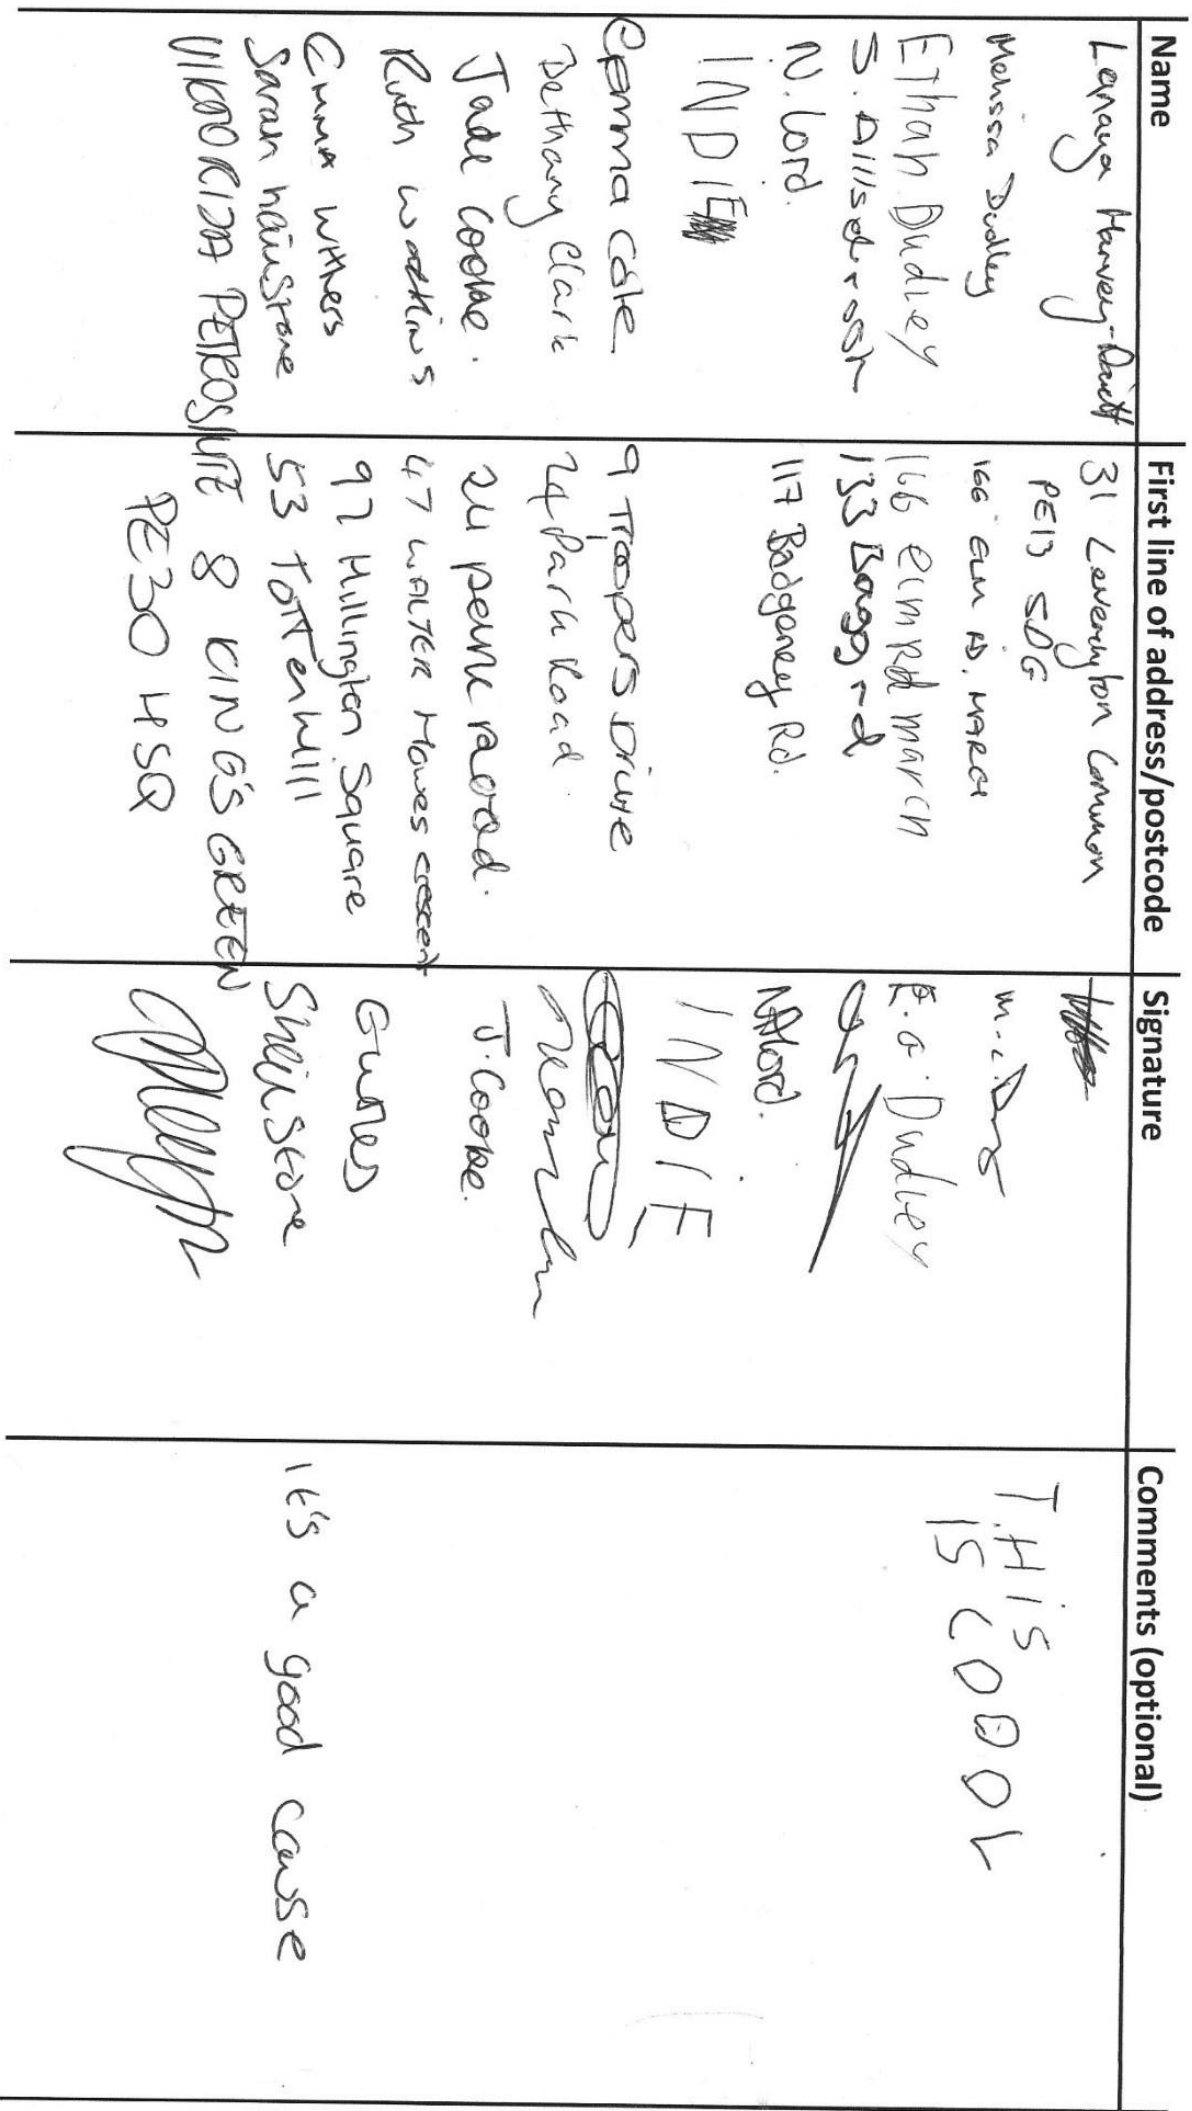 Name First line of address/postcode Signature Comments (optional)
Lanaya Harvey- 31 Leverington Common
PE13 5DG
Melissa Dudley 166 elm rd. MARCH M.C.D THIS
Ethan Dudley 166 elm rd march E.O.Dudley IS COOOL
S. 133 rd
N. Lord. 117 Badgeney Rd. NAlord.
INDIE INDIE
Gemma Cole 9 Troopers Drive
Bethany Clark 24 Park Road.
Jade Cooke. 24 penne raoad. J.Cooke.
Ruth Watkins 47 WALTER Howes crescent
Emma Withers 92 Hillington Square
Sarah hailstone 53 Tottenhill Shailstone it's a good cause
VIKOORIJA PETROSIUTE 8 KING'S GREEN
PE30 4SQ